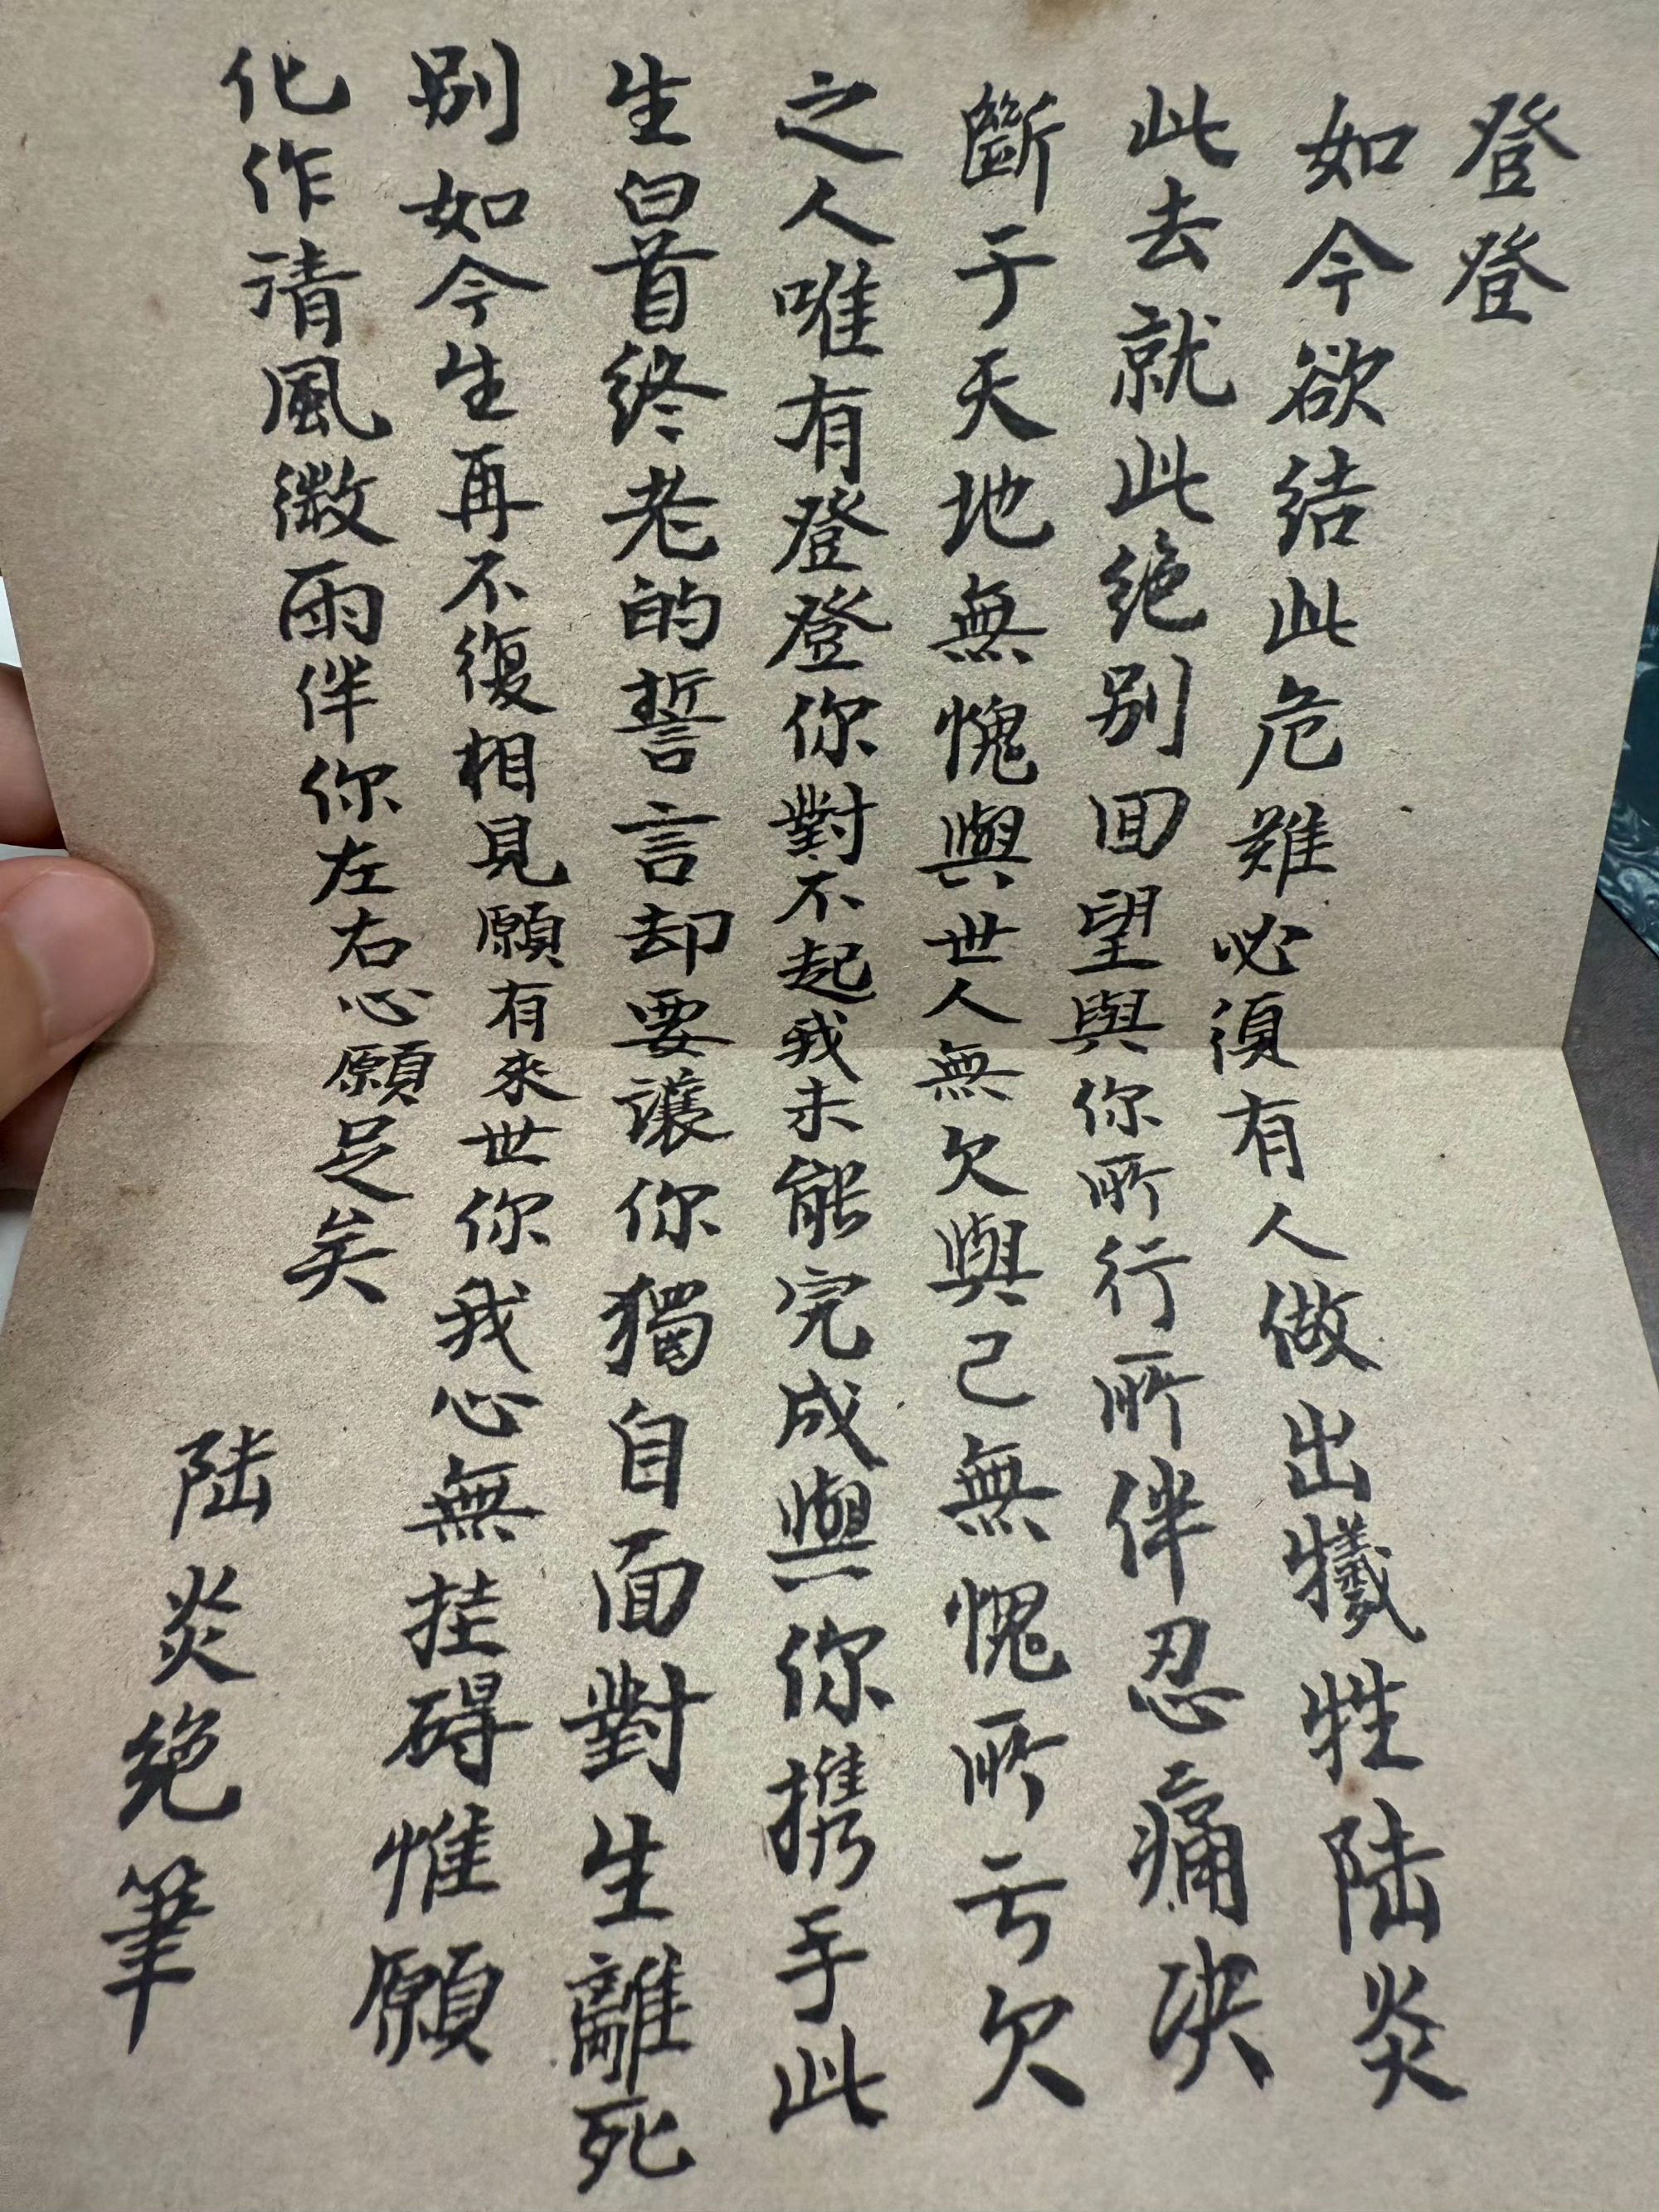 登登
如今欲结此危難必須有人做出犧牲陆炎
此去就此绝别回望與你所行所伴忍痛决
斷于天地無愧與世人無欠與己無愧所亏欠
之人唯有登登你對不起我未能完成與你携手此
生白首终老的誓言却要讓你獨自面對生離死
别如今生再不復相見願有來世你我心無挂碍惟願
化作清風微雨伴你左右心願足矣
陆炎绝筆